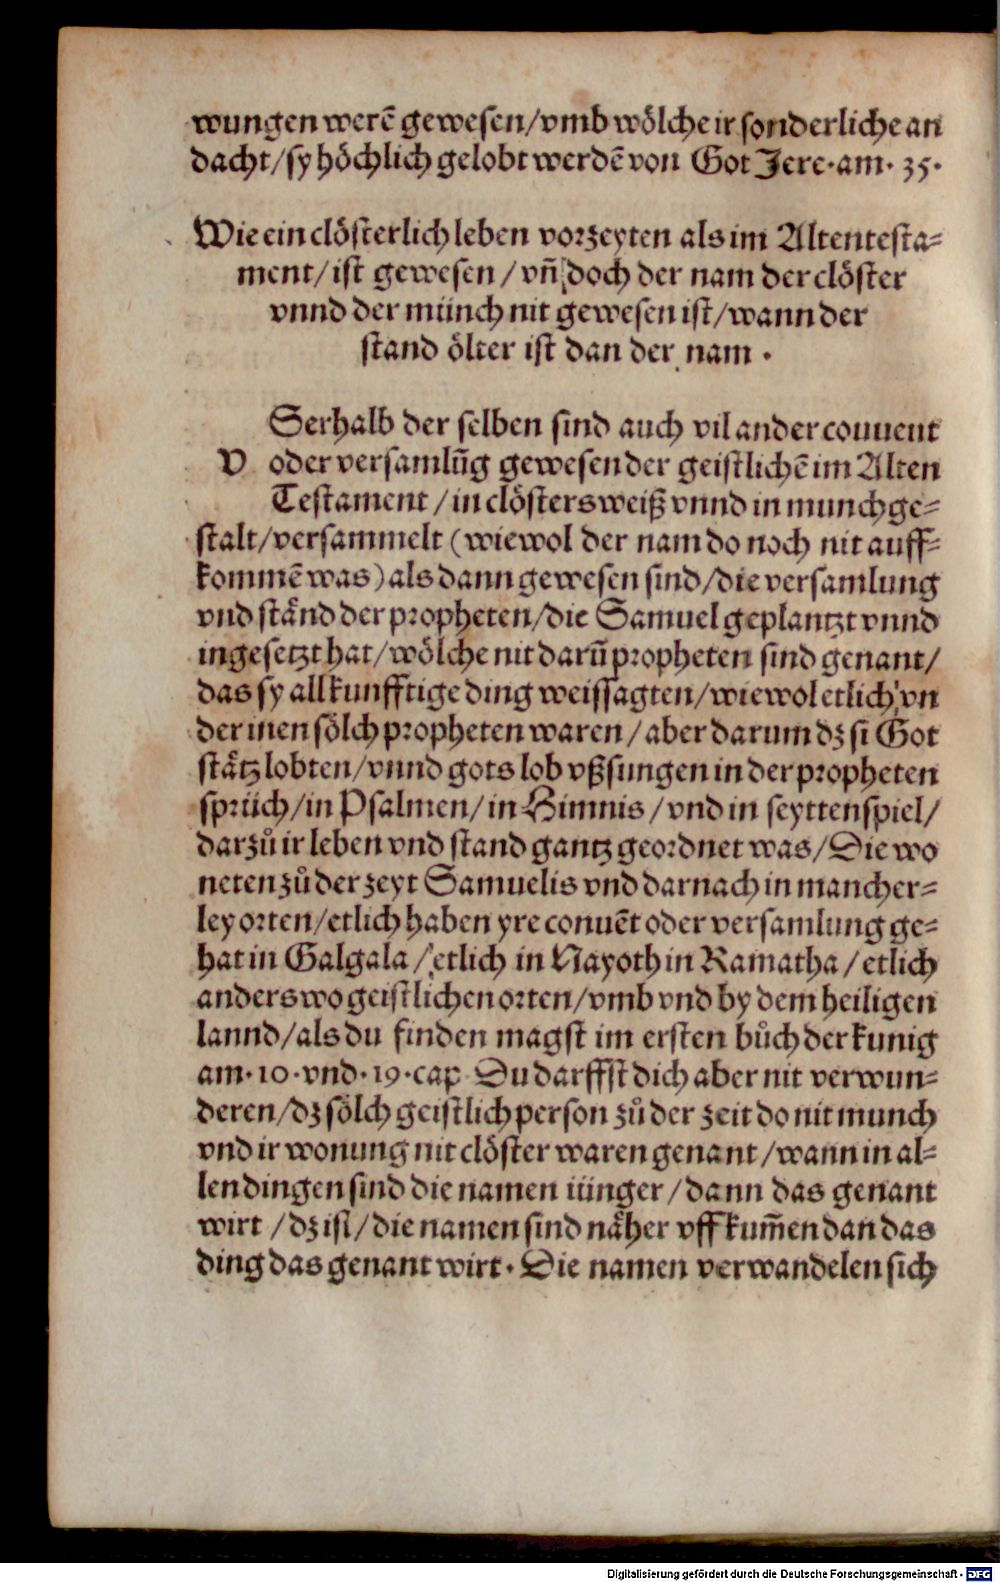 wungen werē gewesen/vmb wölche ir sonderliche an
dacht/sy höchlich gelobt werdē von Got Jere·am· 35·
Wie ein clösterlich leben vorzeyten als im Altentesta⸗
ment/ist gewesen/vñ doch der nam der clöster
vnnd der münch nit gewesen ist/wann der
stand ölter ist dan der nam·
Serhalb der selben sind auch vil ander conuent
V oder versamlūg gewesen der geistlichē im Alten
Testament/in clösters weiß vnnd in munch ge⸗
stalt/versammelt (wiewol der nam do noch nit auff⸗
kommē was) als dann gewesen sind/die versamlung
vnd ständ der propheten/die Samuel geplantzt vnnd
ingesetzt hat/wölche nit darū propheten sind genant/
das sy all kunfftige ding weissagten/wiewol etlich vn
der inen sölch propheten waren/aber darum dz si Got
stätz lobten/vnnd gots lob vßsungen in der propheten
sprüch/in Psalmen/in Himnis/vnd in seyttenspiel/
darzů ir leben vnd stand gantz geordnet was/Die wo
neten zů der zeyt Samuelis vnd darnach in mancher⸗
ley orten/etlich haben yre conuēt oder versamlung ge⸗
hat in Galgala/etlich in Nayoth in Ramatha/etlich
anderswo geistlichen orten/vmb vnd by dem heiligen
lannd/als du finden magst im ersten bůch der kunig
am·10·vnd·19·cap Du darffst dich aber nit verwun⸗
deren/dz sölch geistlich person zů der zeit do nit munch
vnd ir wonung nit clöster waren genant/wann in al⸗
len dingen sind die namen iünger/dann das genant
wirt/dz ist/die namen sind näher vff kum̄en dan das
ding das genant wirt· Die namen verwandelen sich
Digitalisierung gefördert durch die Deutsche Forschungsgemeinschaft - DFG